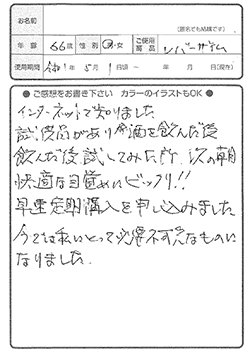 お名前
(匿名でも結構です)
年齢 66歳 性別 男・女 ご使用商品 レバーサイム
使用期間 令和1年5月1日頃 ~ 年 月 日(現在)
●ご感想をお書き下さい カラーのイラストもOK●
インターネットで知りました
試供品があり今迄お酒を飲んだ後
飲んだ後試してみた所、次の朝
快適な目覚めにビックリ!!
早速定期購入を申し込みました
今では私にとって必要不可欠なものに
なりました。